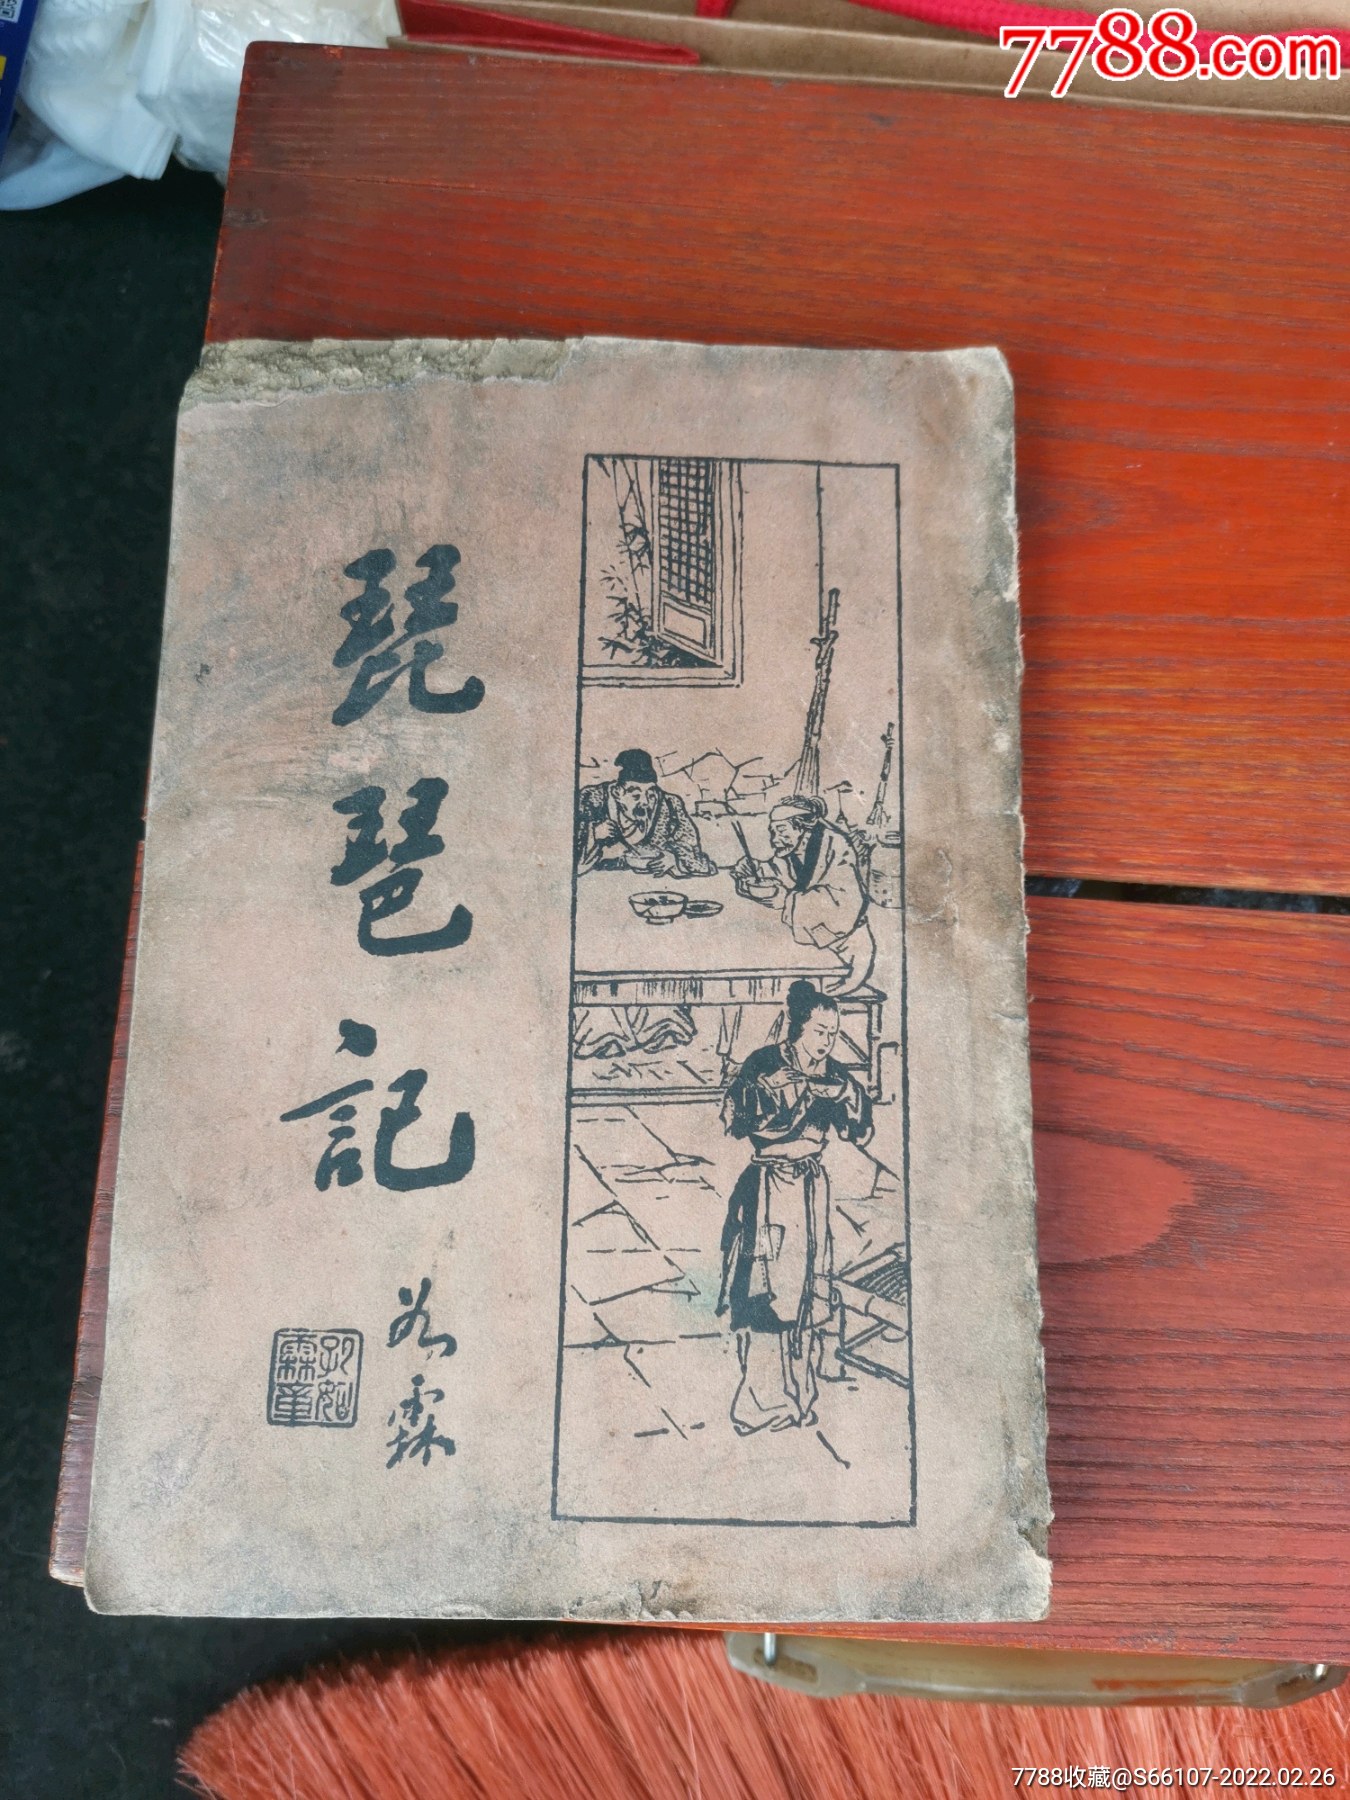 7788.com
琵琶記
若霖
7788收藏@S66107-2022.02.26